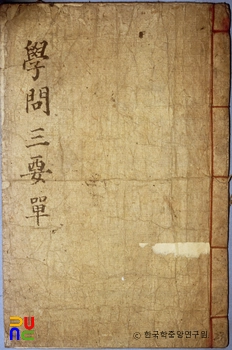 學問三要單
PUNC
© 한국학중앙연구원